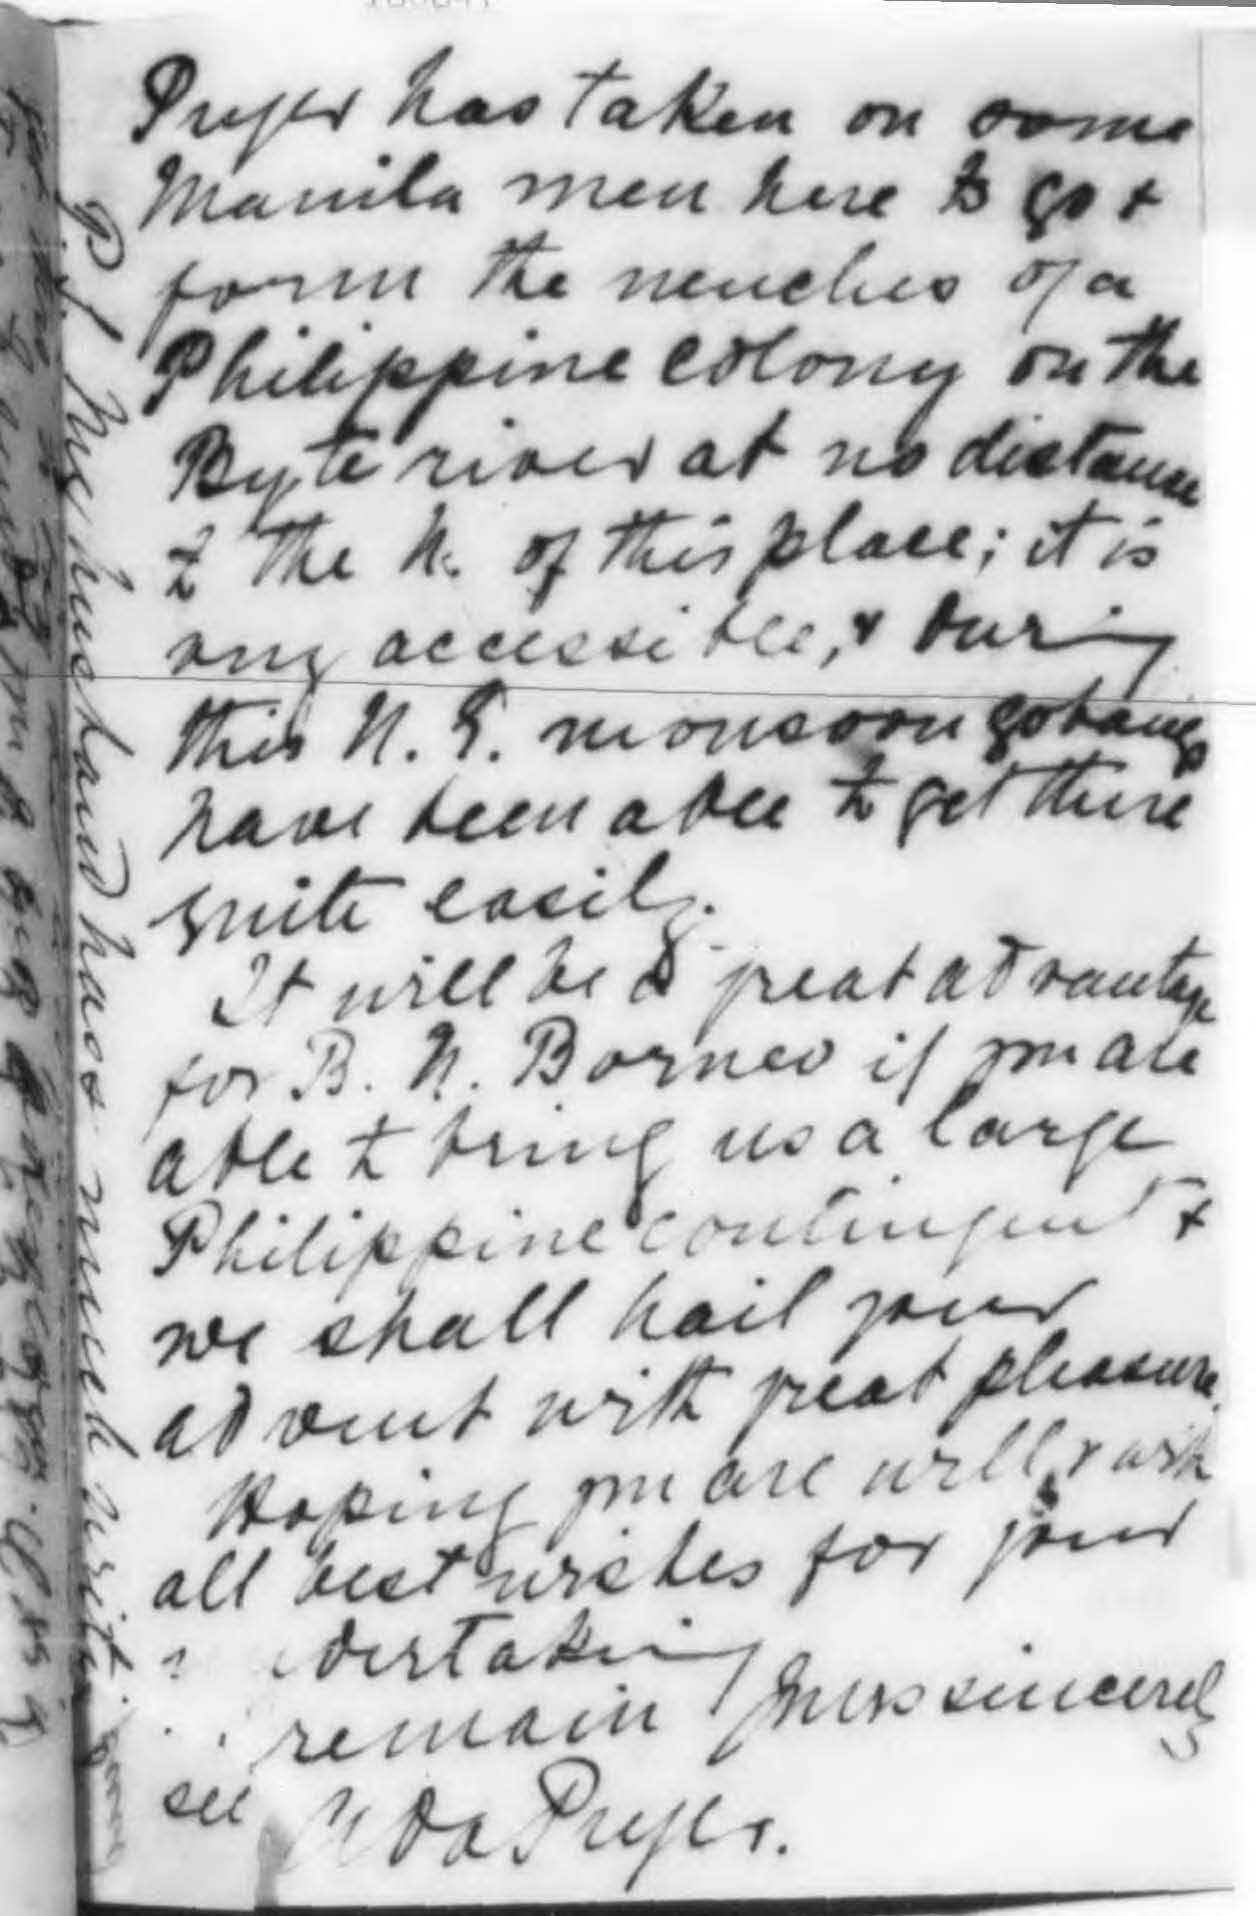 Pryer has taken on some
Manila men here to go &
form the neucleus of a
Philippine colony on the
Byte river at no distance
to the N. of this place; it is
very accessible, & during
this N. E. monsoon gobangs
have been able to get there
quite easily.
It will be a great advantage
for B. N. Borneo if you are
able to bring us a large
Philippine contingent &
we shall hail your
advent with great pleasure.
Hoping you are well & with
all best wishes for your
undertaking
remain Yours sincerely
Ada Pryer.
see
My husband has much writing